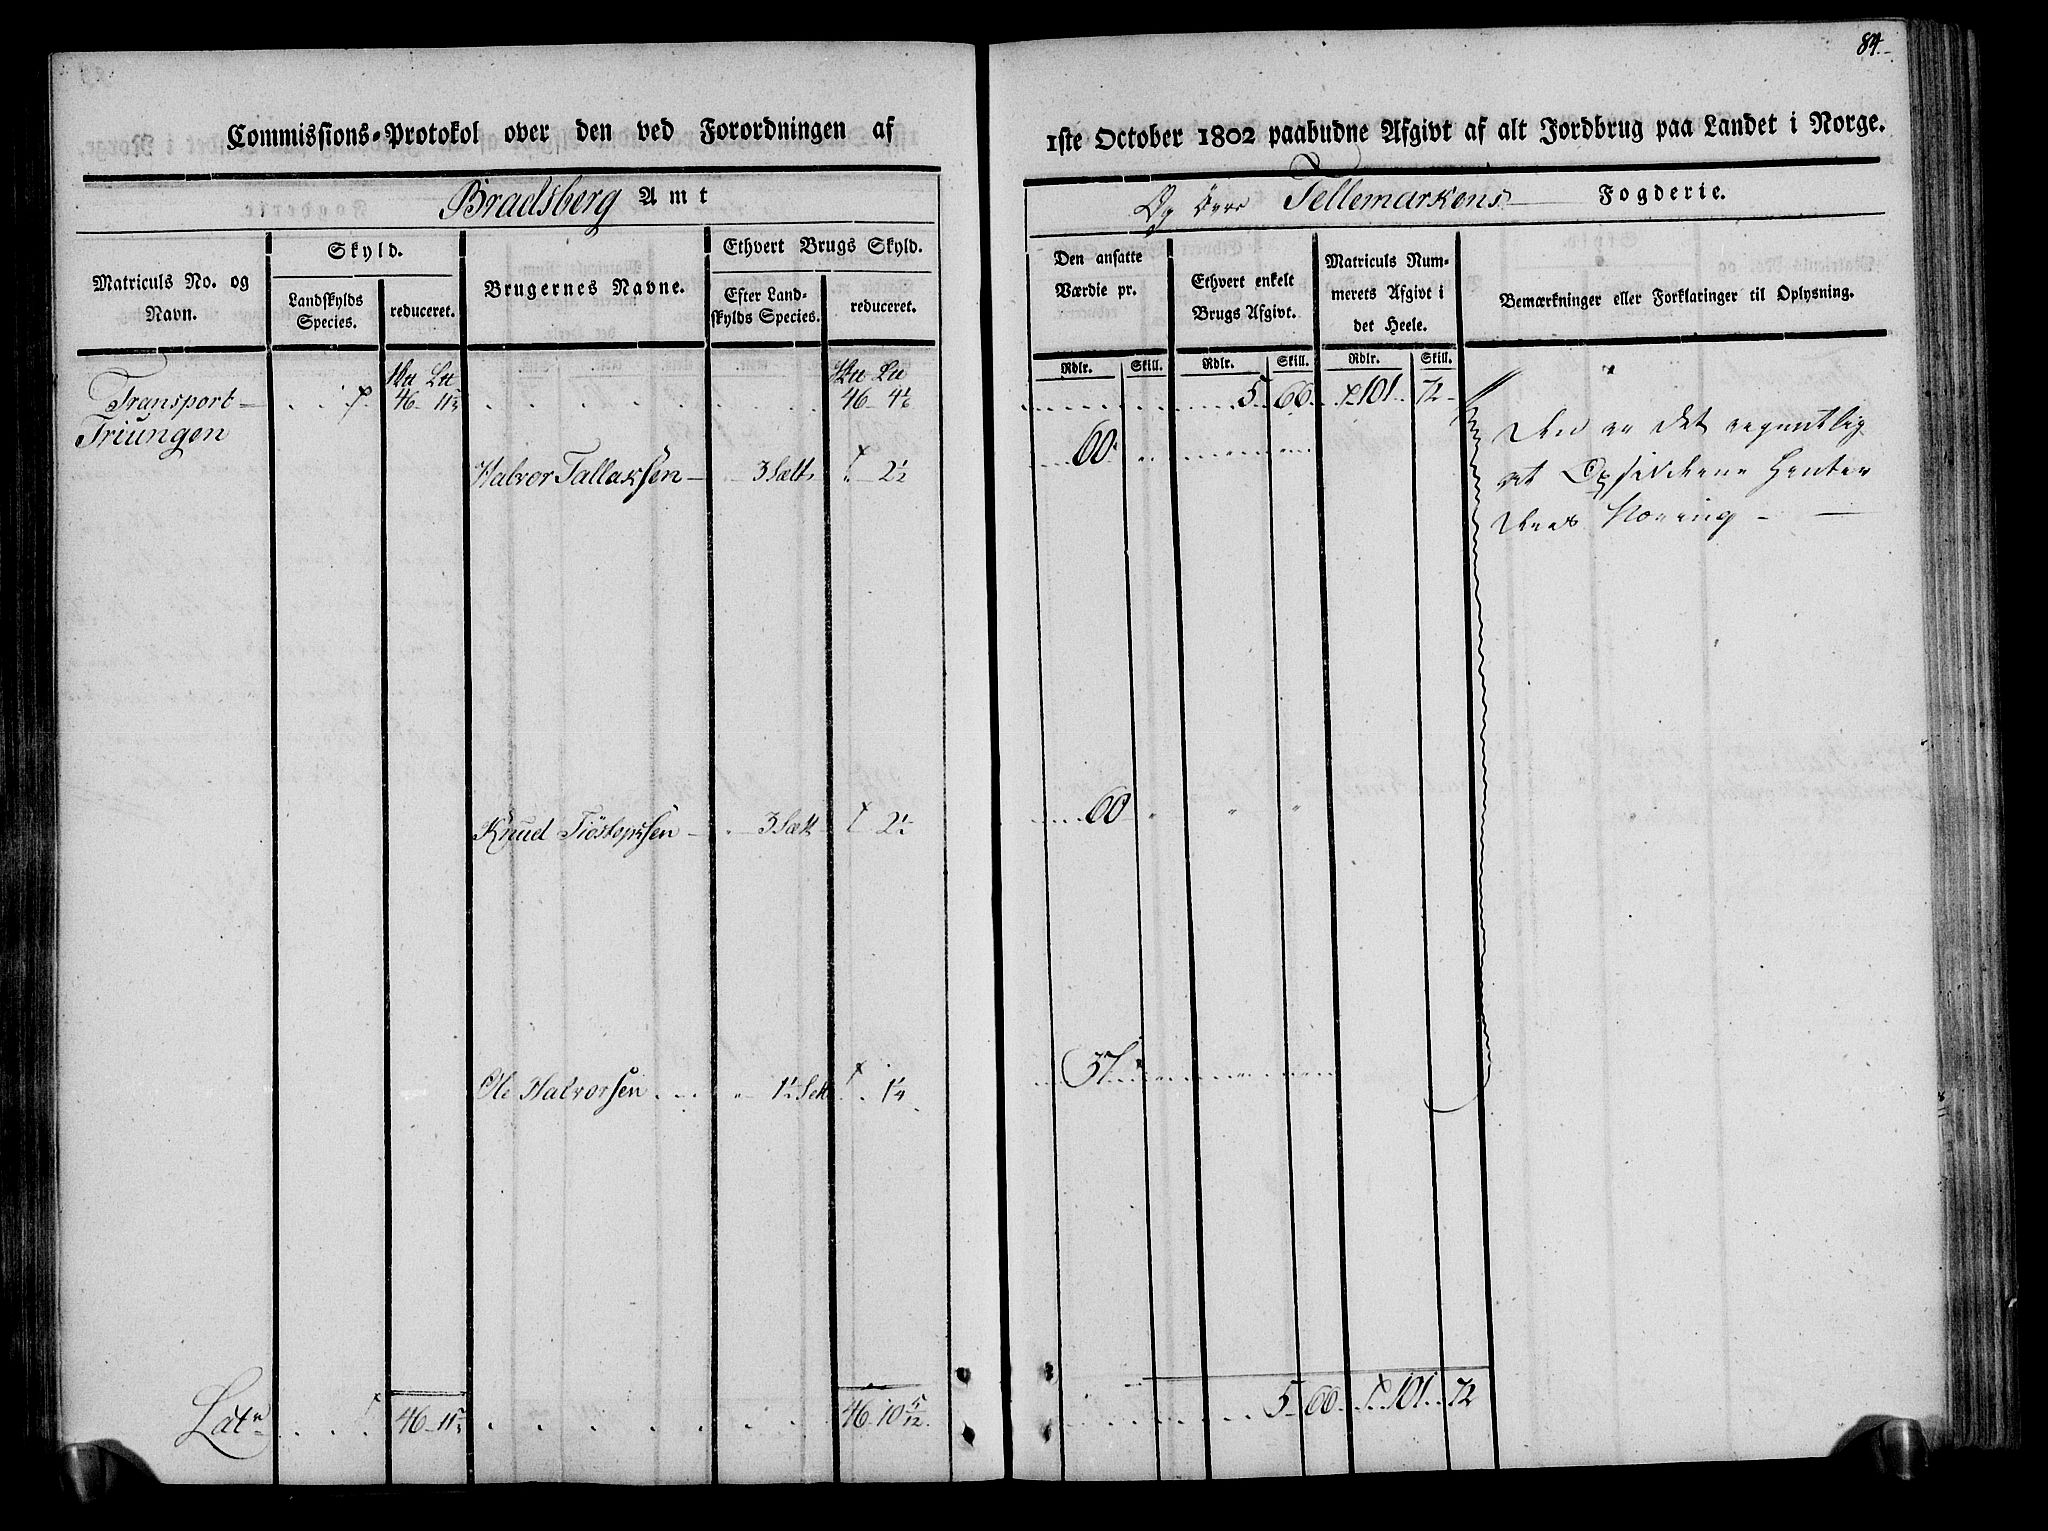 84.
Commissions-Protokol over den ved Forordningen af
1ste October 1802 paabudne Afgivt af alt Jordbrug paa Landet i Norge.
Bradsberg Amt
Og övre Tellemarkens Fogderie.
Matriculs No. og Navn.
Skyld.
Landskylds Species.
reduceret.
Brugernes Navne.
Ethvert Brugs Skyld.
Efter Landskylds Species.
reduceret.
Den ansatte Værdie pr.
Rdlr. Skill.
Ethvert enkelt Brugs Afgivt.
Rdlr. Skill.
Matriculs Nummerets Afgivt i det Heele.
Rdlr. Skill.
Bemærkninger eller Forklaringer til Oplysning.
Transport 46 11½ 46 4⅙ 5 66 101 72
Triungen
Halvor Tallaksen 3 Sætt 2½ 60
Den er det egentlig
at Opsidderne Henter
deres Næring
Knud Tiöstopsen 3 Sætt 2½ 60
Ole Halvorsen 1½ Sætt 1¼ 37
Lat 46 11½ 46 10 5/12 5 66 101 72